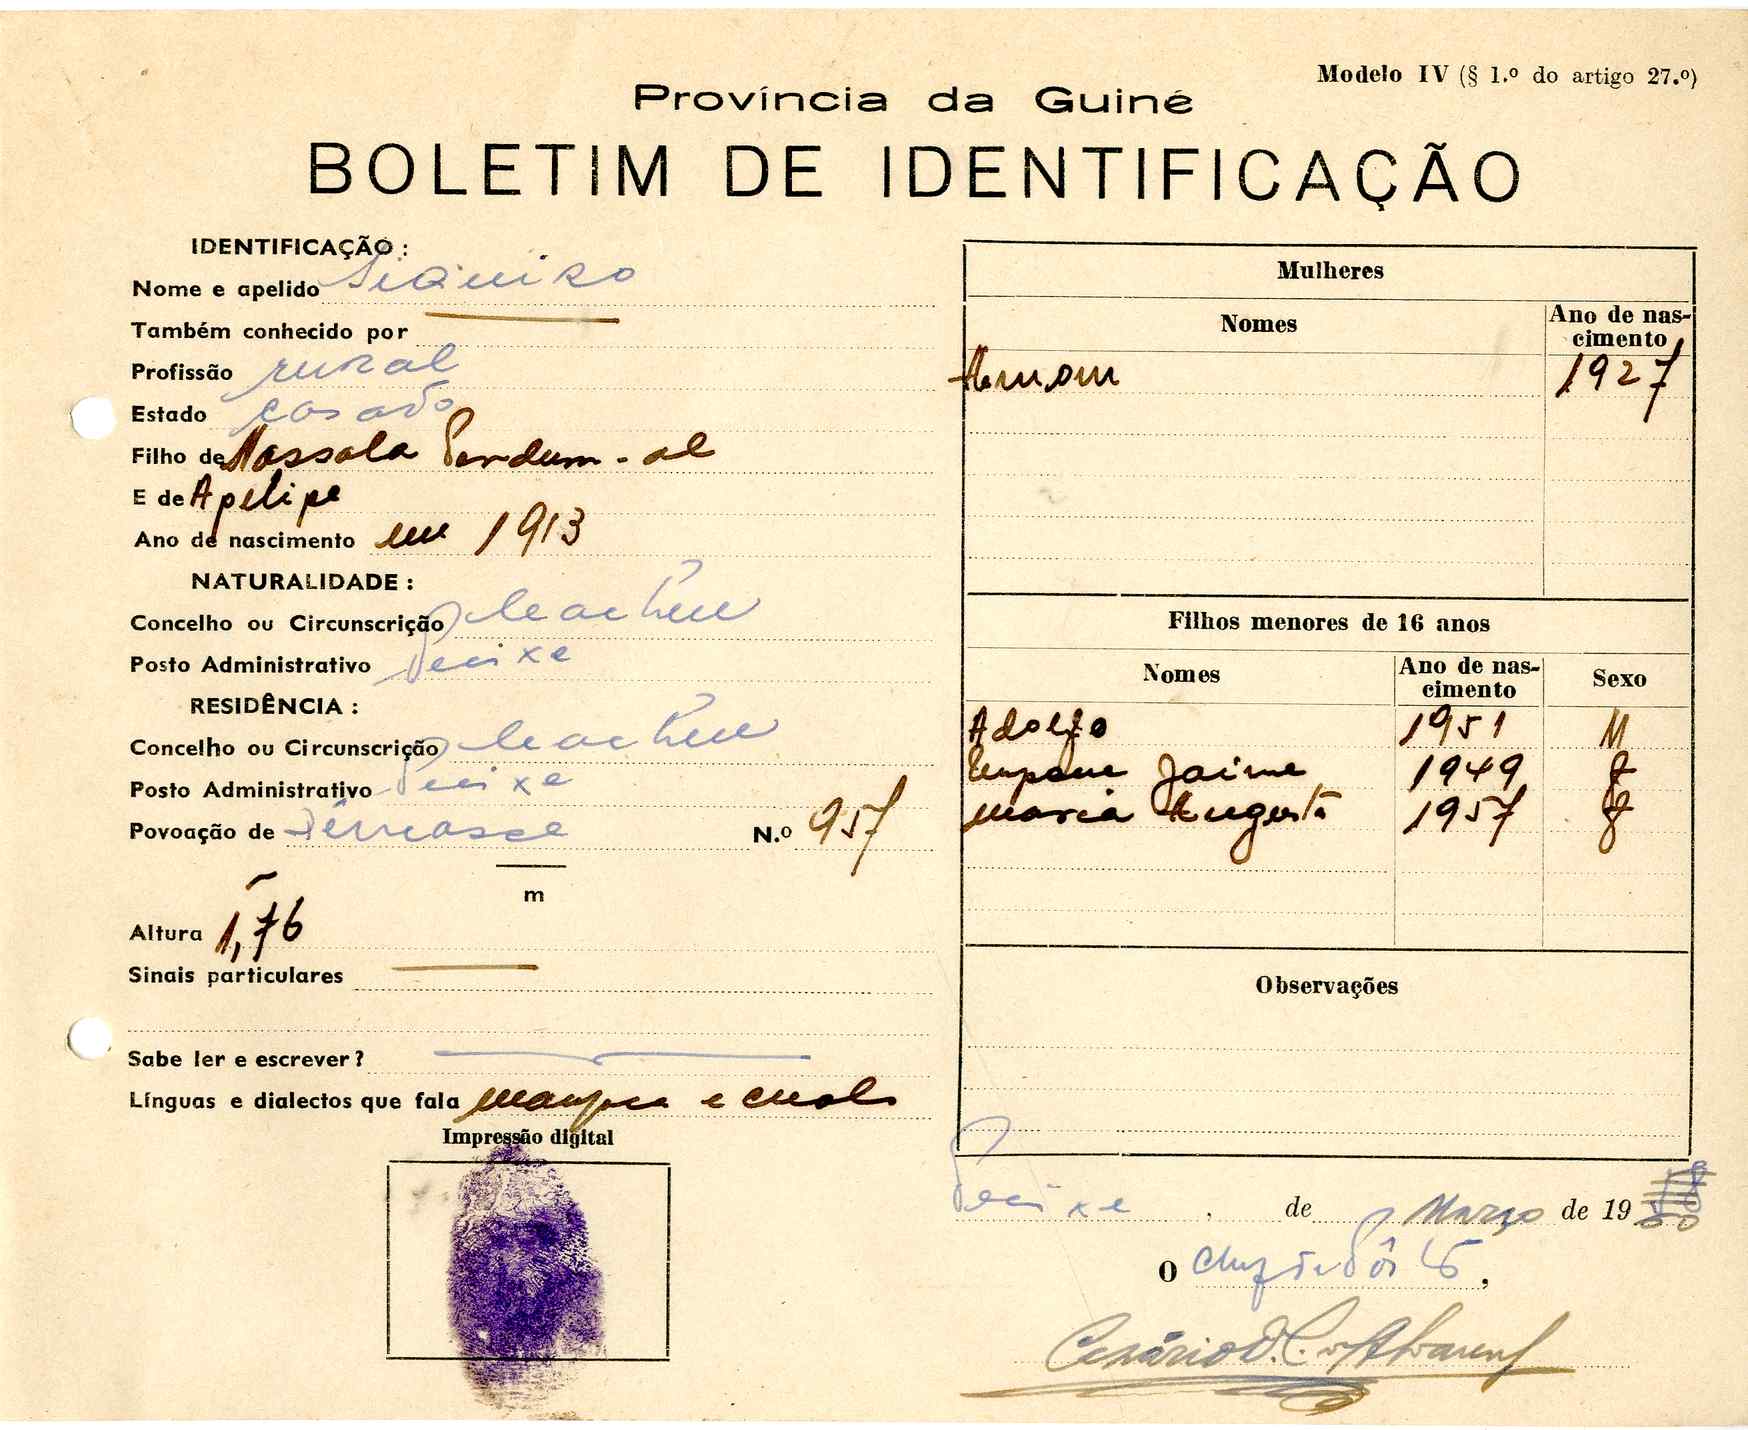 Modelo IV (§ 1.º do artigo 27.º)
Província da Guiné
BOLETIM DE IDENTIFICAÇÃO
IDENTIFICAÇÃO :
Nome e apelido
Também conhecido por
Profissão rural
Estado casado
Filho de
E de Apelipe
Ano de nascimento em 1913
NATURALIDADE :
Concelho ou Circunscrição Cacheu
Posto Administrativo Pecixe
RESIDÊNCIA :
Concelho ou Circunscrição Cacheu
Posto Administrativo Pecixe
Povoação de N.º 957
m
Altura 1,76
Sinais particulares
Sabe ler e escrever ?
Línguas e dialectos que fala e crioulo
Impressão digital
Mulheres
Nomes Ano de nas-
cimento
1927
Filhos menores de 16 anos
Nomes Ano de nas-
cimento Sexo
Adolfo 1951 M
Jaime 1949 f
Maria Augusta 1957 f
Observações
Pecixe, de Março de 19
O Chefe de Pôsto,